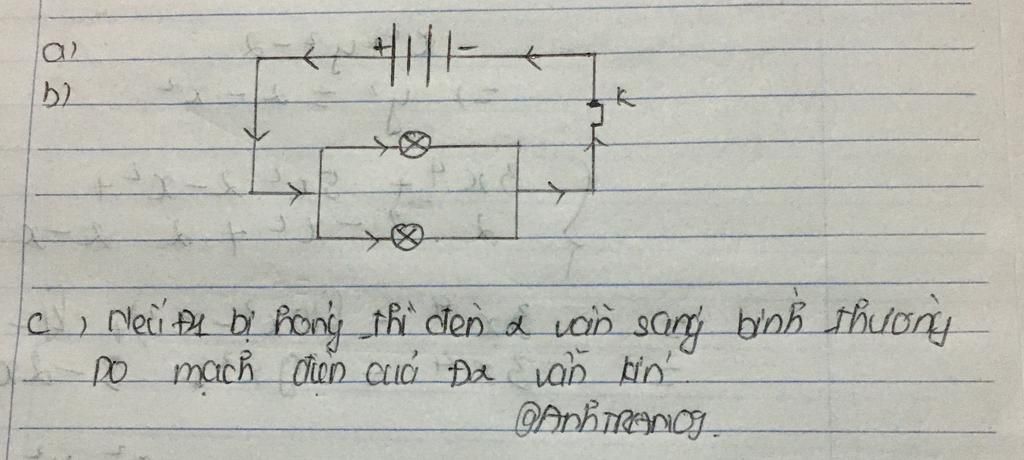 a)
+ -
b)
K
c) Nếu Đ1 bị hỏng thì đèn 2 vẫn sáng bình thường
Do mạch điện của Đ2 vẫn kín.